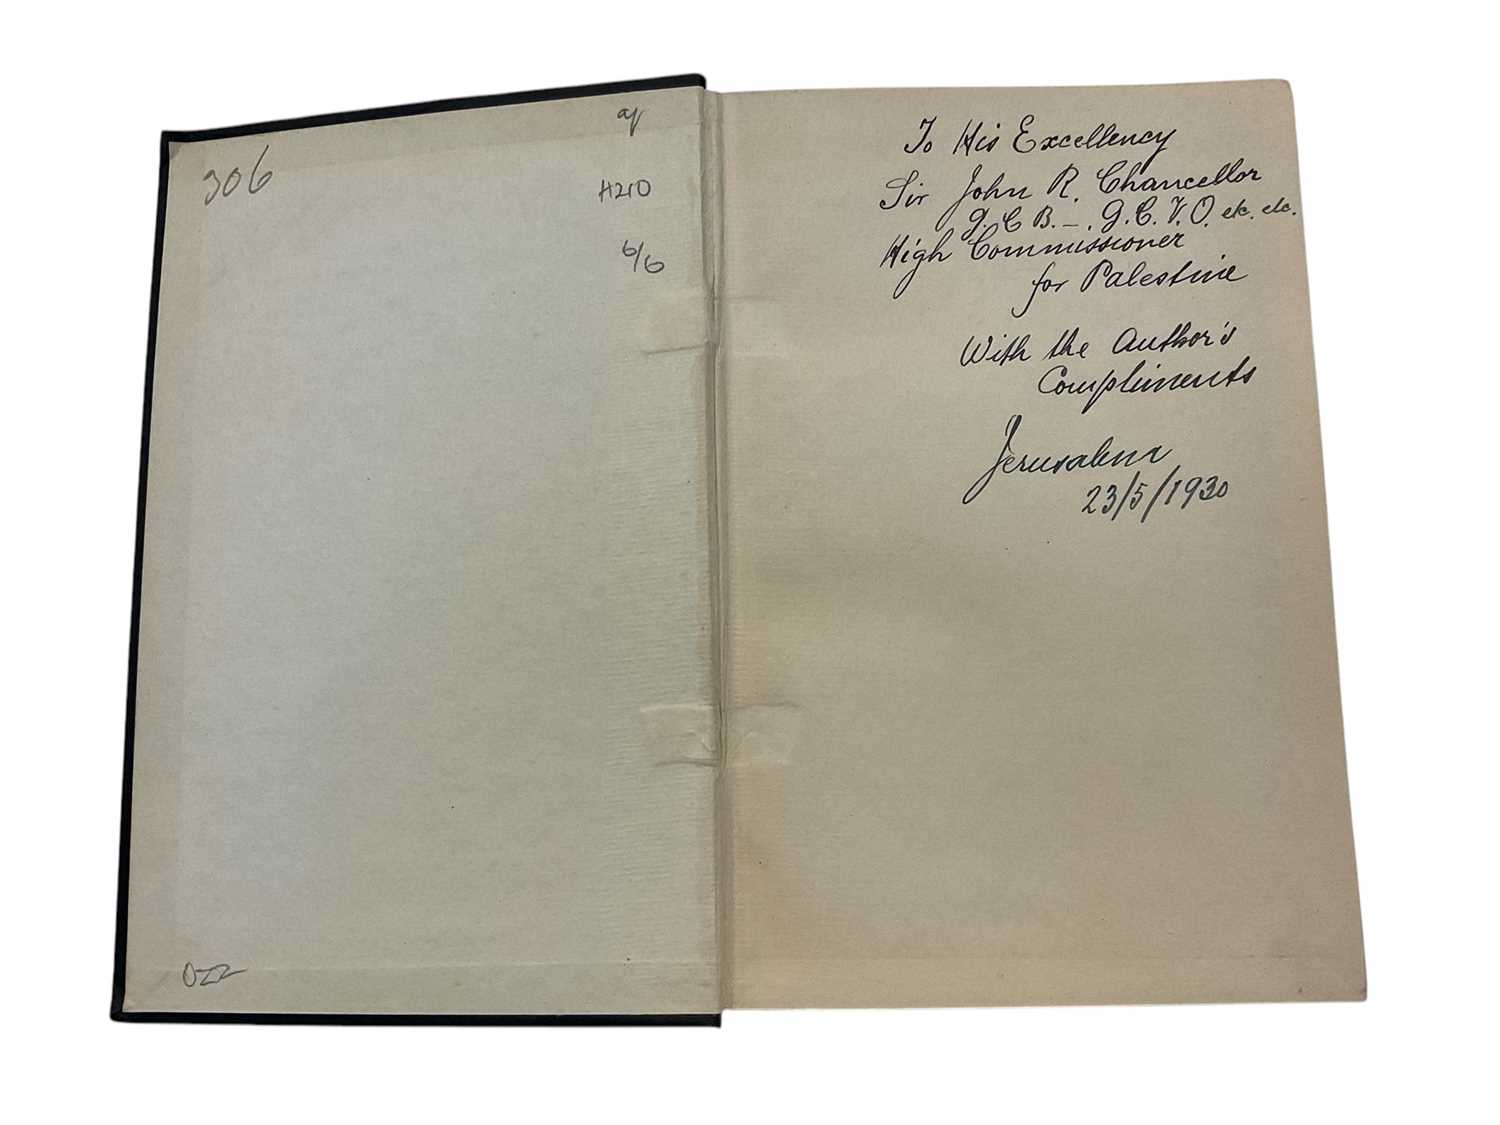 306
H210
6/6
To His Excellency
Sir John R. Chancellor
G.C.B. – . G.C.V.O. etc. etc.
High Commissioner
for Palestine
With the Author's
Compliments
Jerusalem
23/5/1930